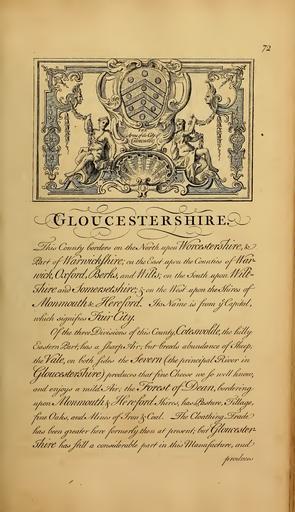 72
Arms of the City of
Gloucester
GLOUCESTERSHIRE.
This County borders on the North upon Worcestershire, &
Part of Warwickshire, on the East upon the Counties of War-
wick, Oxford, Berks, and Wilts; on the South upon Wilt-
shire and Somersetshire; & on the West upon the Shires of
Monmouth & Hereford. Its Name is from yͤ Capital,
which signifies Fair City.
Of the three Divisions of this County, Coteswould, the hilly
Eastern Part, has a sharp Air; but breeds abundance of Sheep,
the Vale, on both sides the Severn (the principal River in
Gloucestershire) produces that fine Cheese we so well know,
and enjoys a mild Air; the Forest of Dean, bordering
upon Monmouth & Hereford Shires, has Pasture, Tillage,
fine Oaks, and Mines of Iron & Coal. The Cloathing Trade
has been greater here formerly than at present; but Gloucester-
shire has still a considerable part in this Manufacture, and
produces